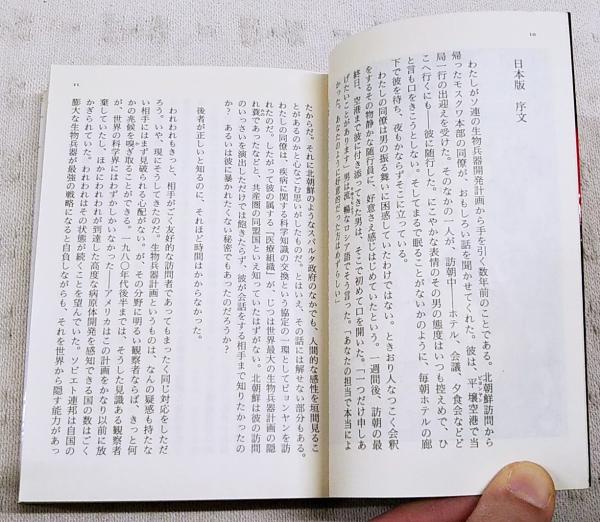 10
日本版　序文
わたしがソ連の生物兵器開発計画から手を引く数年前のことである。北朝鮮訪問から
帰ったモスクワ本部の同僚が、おもしろい話を聞かせてくれた。彼は、平壌空港で当
局一行の出迎えを受けた。そのなかの一人が、訪朝中――ホテル、会議、夕食会などど
こへ行くにも――彼に随行した。にこやかな表情のその男の態度はいつも控えめで、ひ
と言も口をきこうとしない。そしてまるで眠ることがないかのように、毎朝ホテルの廊
下で彼を待ち、夜もかならずそこに立っている。
わたしの同僚は男の振る舞いに困惑していたわけではない。ときおり人なつこく会釈
をするその物静かな随行員に、好意さえ感じはじめていたという。一週間後、訪朝の最
終日、空港まで彼に付き添ってきた男は、そこで初めて口を開いた。「一つだけ申しあ
げたいことがあります」男は流暢なロシア語でそう言った。「あなたの担当で本当によ
かった。あなたのように好意的だった方はめずらしい」
11
たからだ。それに北朝鮮のようなスパルタ政府のなかでも、人間的な感性を垣間見るこ
とがあるのかと心なごむ思いがしたものだ。とはいえ、その話には解せない部分もある。
わたしの同僚は、疾病に関する科学知識の交換という協定の一環としてピョンヤンを訪
れたのだ。したがって彼の属する「医療組織」が、じつは世界最大の生物兵器計画の隠
れ蓑であったなどと、共産圏の同盟国といえ知っていたはずがない。北朝鮮は彼の訪問
のいっさいを演出しただけでは飽きたらず、彼が会話をする相手まで知りたかったの
か？　あるいは彼に暴かれたくない秘密でもあったのだろうか？
後者が正しいと知るのに、それほど時間はかからなかった。
われわれもきっと、相手がごく友好的な訪問者であってもまったく同じ対応をしただ
ろう。いや、現にそうしてきたのだ。生物兵器計画というものは、なんの疑惑も持たな
い相手にはまず見破られる心配がない。が、その分野に明るい観察者ならば、きっと何
かの兆候を嗅ぎ取ることができる。一九八〇年代後半までは、そうした見識ある観察者
が、世界の科学界にはわずかしかいなかった――アメリカはこの計画をかなり以前に放
棄していたし、ほかにわれわれが到達した高度な病原体開発を感知できる国の数はごく
かぎられていた。われわれはその状態が続くことを望んでいた。ソビエト連邦は自国の
膨大な生物兵器が最強の戦略になると自負しながらも、それを世界から隠す能力があっ